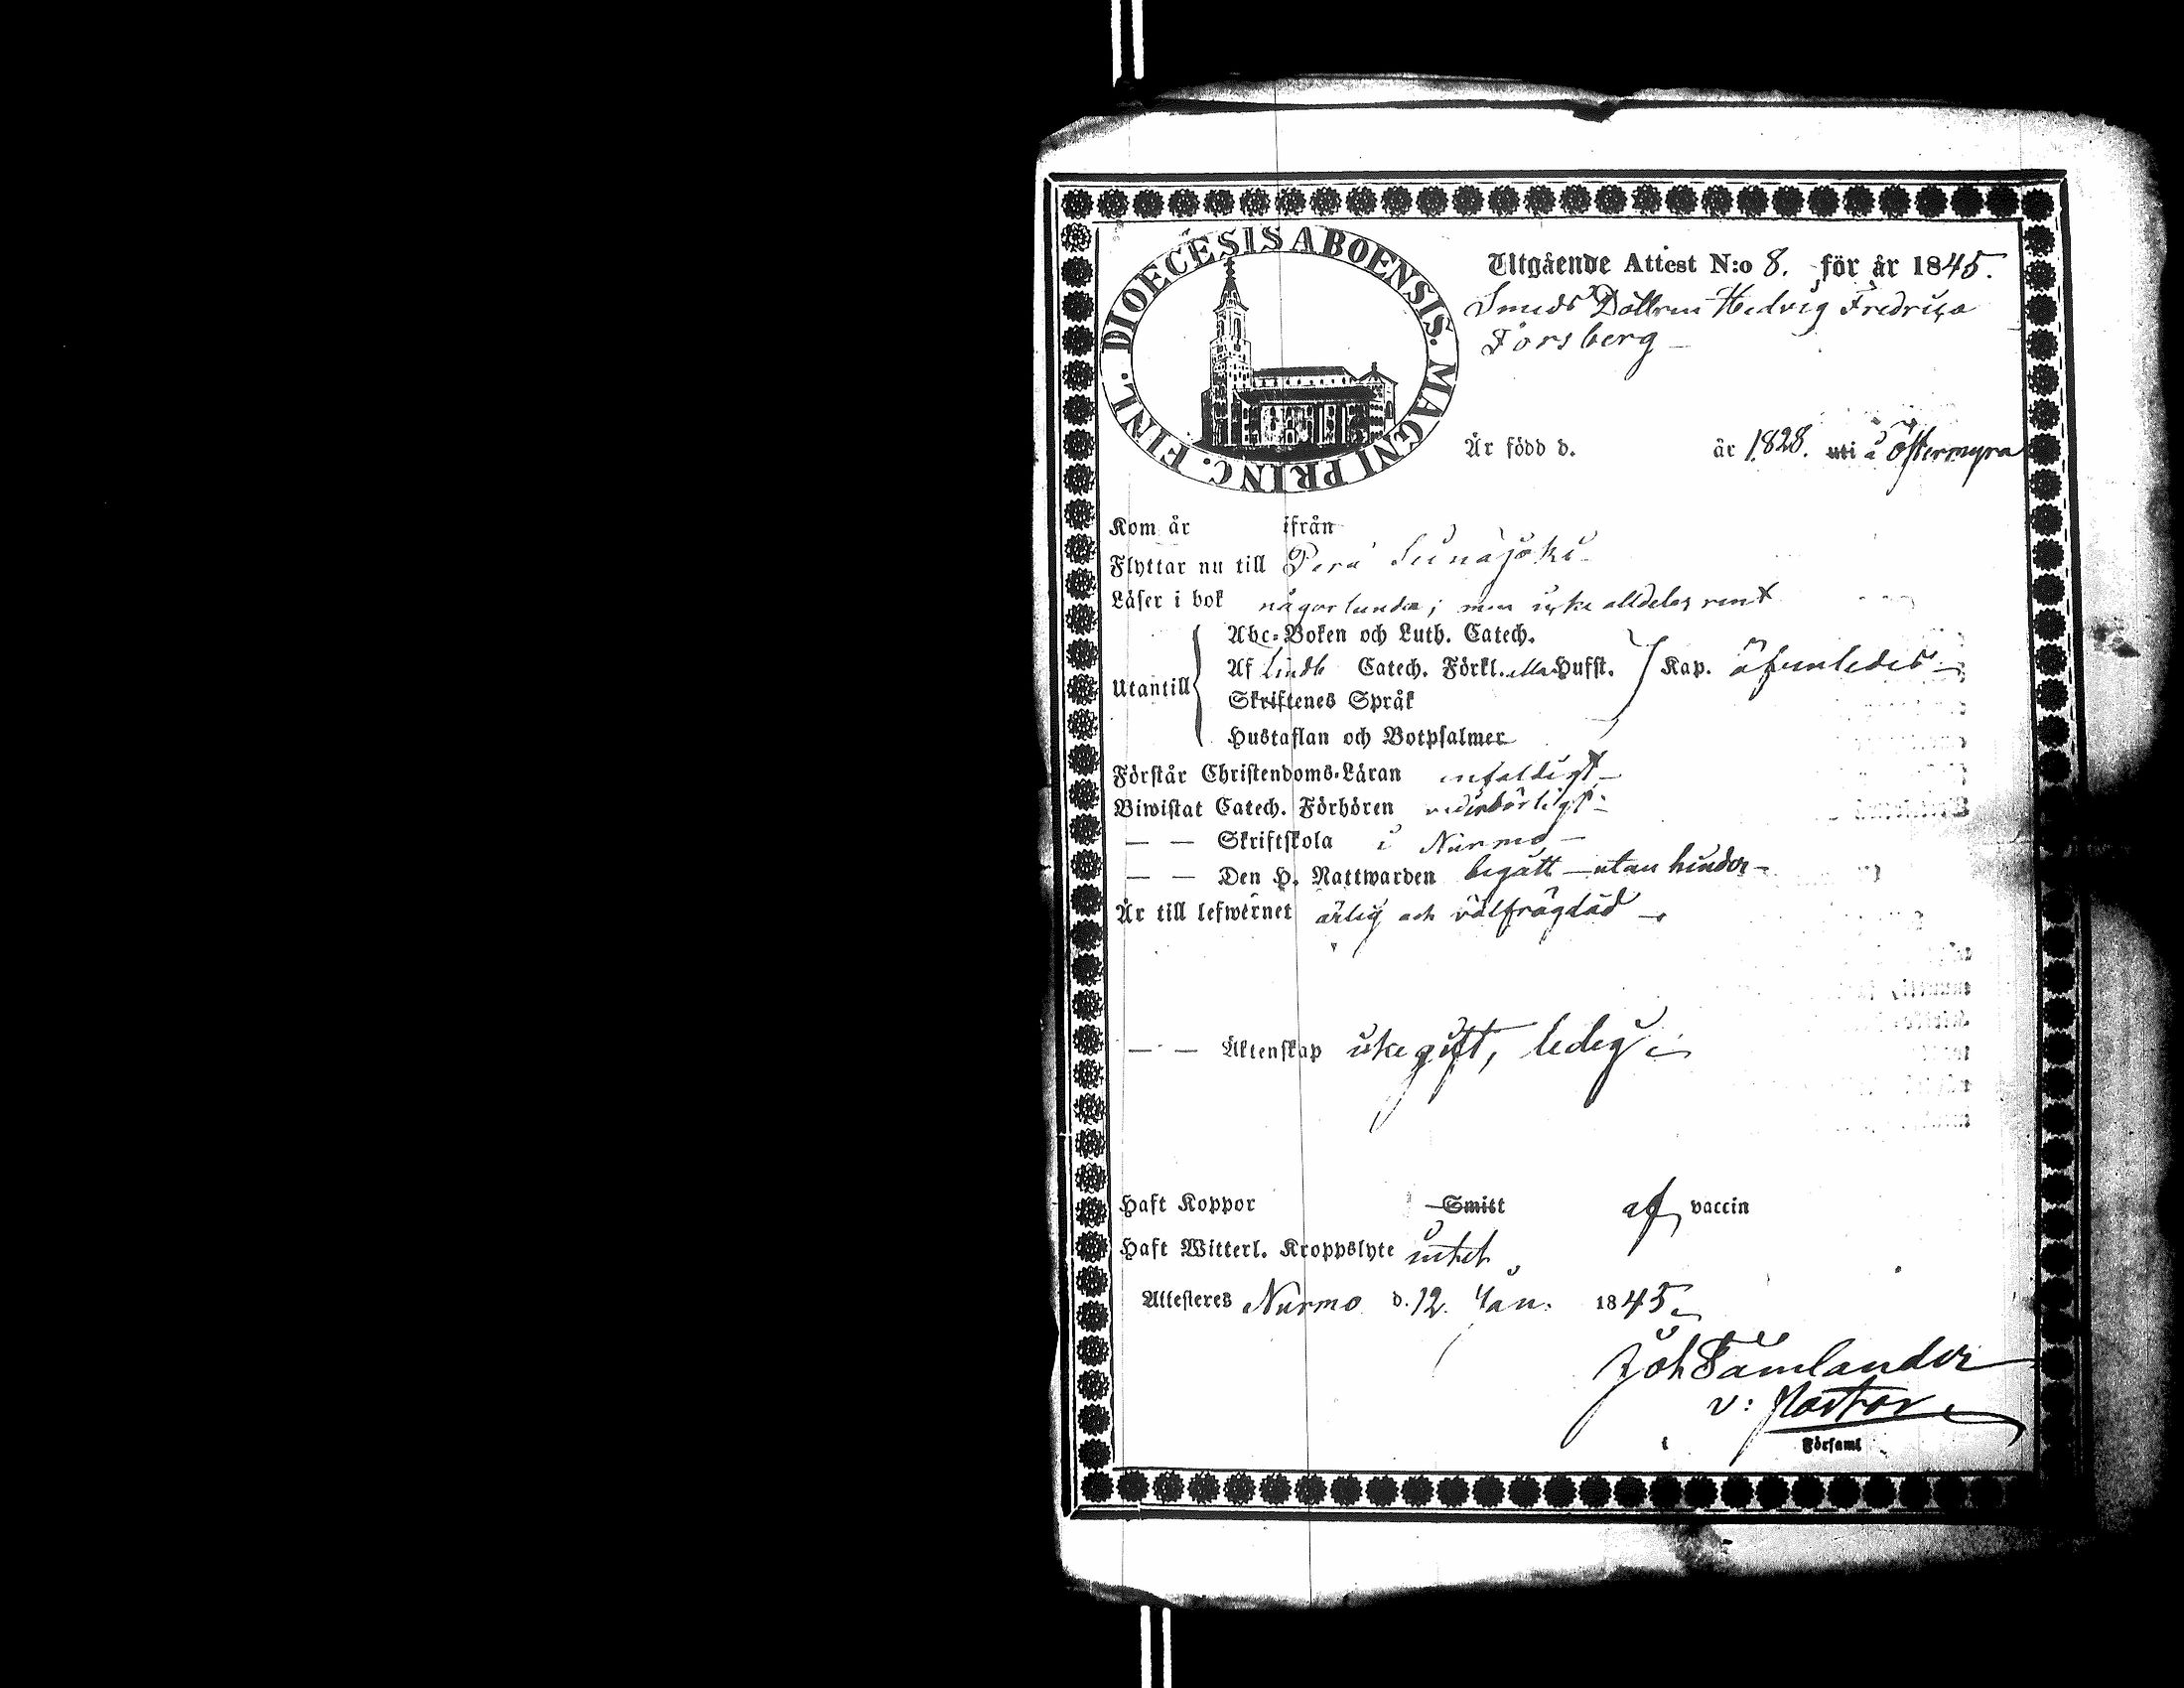 DIOECESIS ABOENSIS. MAGNI PRINC. FINL.
Utgående Attest N:o 8. för år 1845.
Smeds Dottren Hedvig Fredrica
Forsberg
Är född d. år 1828. uti i Östermyra
Kom år ifrån
Flyttar nu till Perä Seinäjoki
Läser i bok någorlunda; men icke alldeles rent
Utantill
Abc-Boken och Luth. Catech.
Af Lindb Catech. Förkl. Husst. Kap. äfvenledes
Skriftenes Språk
Hustaflan och Botpsalmer
Förstår Christendoms-Läran enfaldigt
Biwistat Catech. Förhören vederbörligt
— — Skriftskola i Nurmo
— — Den H. Nattwarden begått utan hinder
Är till lefwernet ärlig och välfrägdad
— — Äktenskap icke gift, ledig
Haft Koppor Smitt af vaccin
Haft Witterl. Kroppslyte intet
Attesteres Nurmo d. 12. Jan. 1845
Joh
v: Pastor
i Församl